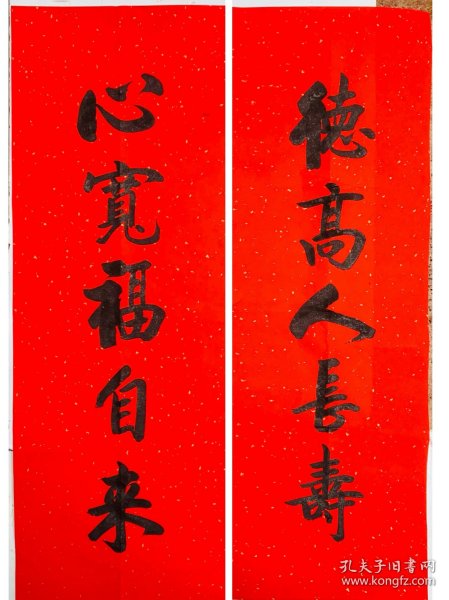 德高人長壽
心寬福自来
孔夫子旧书网
www.kongfz.com